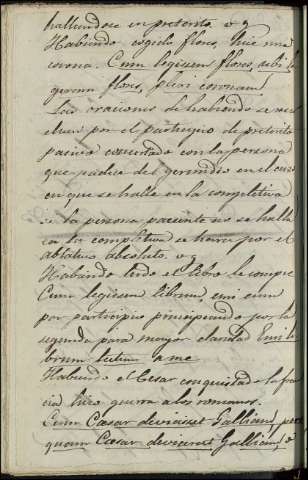 hallandose en preterito v g
Habiendo cogido flores, hice una
corona. Cum legissem flores,
flores, coronam
Las oraciones de habiendo se
por el participio de preterito
pasivo concertado con la persona
que padece del gerundio en el caso
en que se halle en la completiva
si la persona paciente no se halla
en la completiva se hara por el
ablativo absoluto. v g
Habiendo leido el libro le compre
Cum legissem librum, emi eum
por participio principiando por la
segunda para mayor claridad Emi li
brum lectum a me
Habiendo el Cesar conquistado la fran
cia hizo guerra a los romanos.
Cum Cæsar devicisset Galliam,
quam Cæsar devicerat Galliam, o